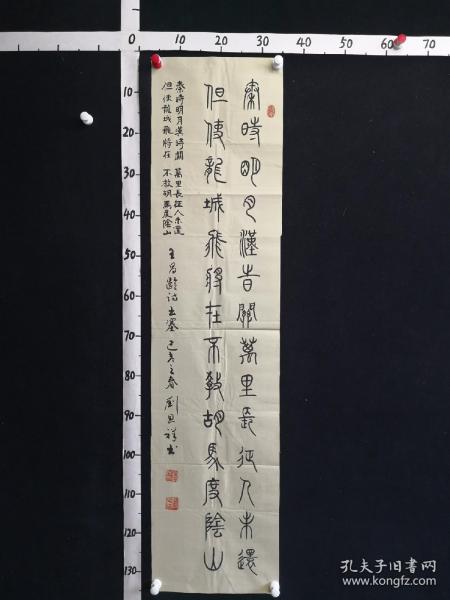 秦時明月漢時關萬里長征人未還
但使龍城飛將在不教胡馬度陰山
秦時明月漢時關 萬里長征人未還
但使龍城飛將在 不教胡馬度陰山
王昌齡詩出塞 己亥之春 劉思祥書
0 10 20 30 40 50 60 70
10
20
30
40
50
60
70
80
90
100
110
120
130
孔夫子旧书网
www.kongfz.com